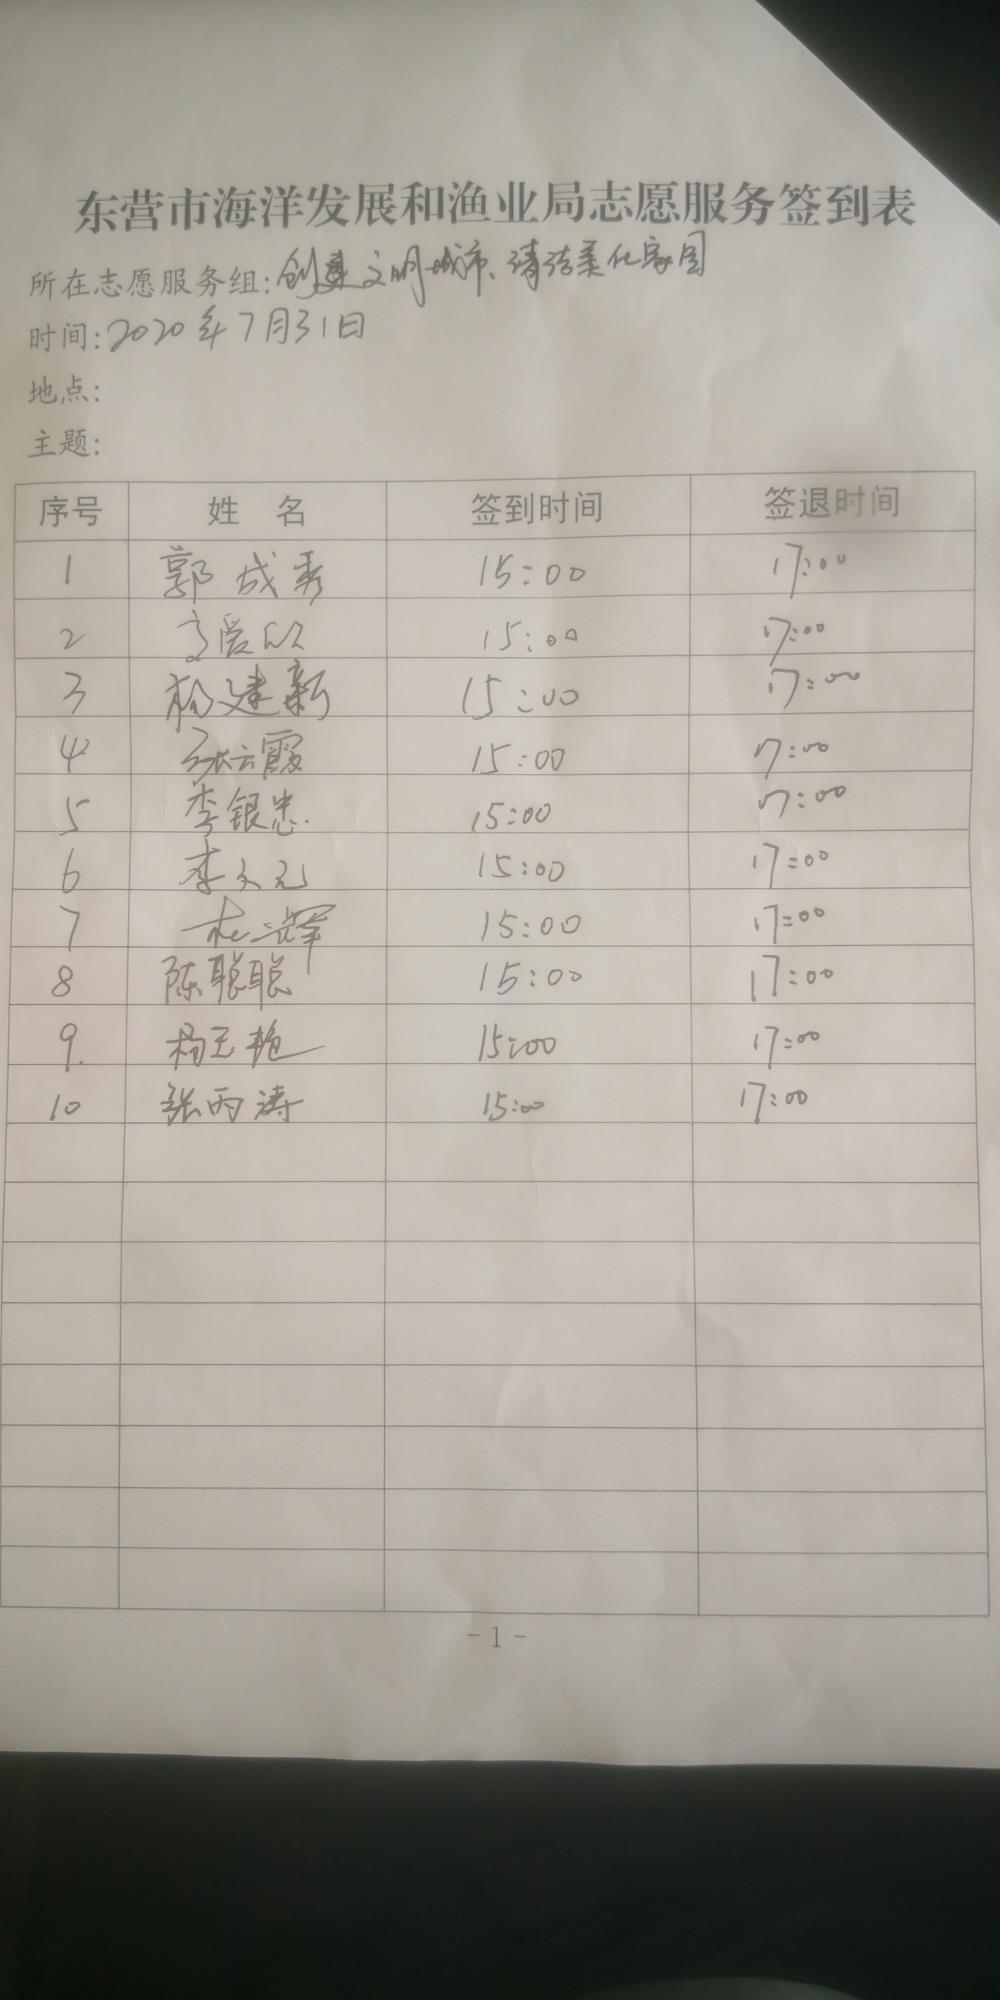 东营市海洋发展和渔业局志愿服务签到表
所在志愿服务组:创建文明城市、清洁美化家园
时间:2020年7月31日
地点:
主题:
序号 姓名 签到时间 签退时间
1 郭成秀 15:00 17:00
2 15:00 17:00
3 杨建新 15:00 17:00
4 张云霞 15:00 17:00
5 李银忠 15:00 17:00
6 李文元 15:00 17:00
7 杜辉 15:00 17:00
8 陈聪聪 15:00 17:00
9. 杨玉艳 15:00 17:00
10 张丙涛 15:00 17:00
- 1 -